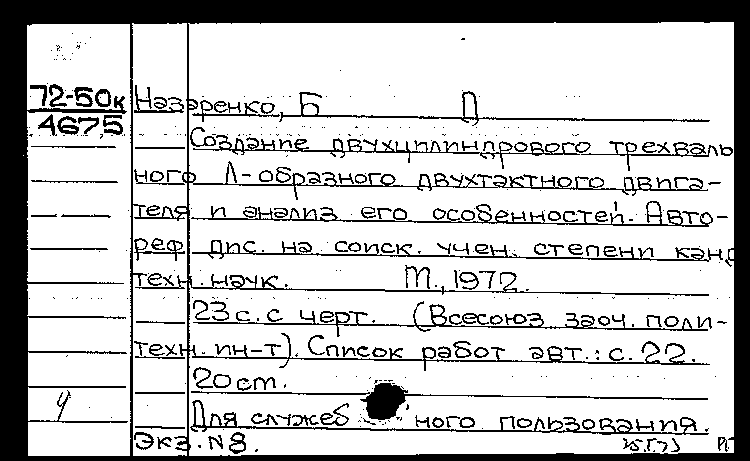 72-50к
4675
Назаренко, Б Д
Создание двухцилиндрового трехваль
ного Л-образного двухтактного двига-
теля и анализ его особенностей. Авто-
реф дис. на соиск. учен. степени канд
техн. наук. М., 1972.
23 с. с черт. (Всесоюз заоч. поли-
техн. ин-т). Список работ авт.: с. 22.
20 см.
Для служебного пользования.
Экз. N 8.